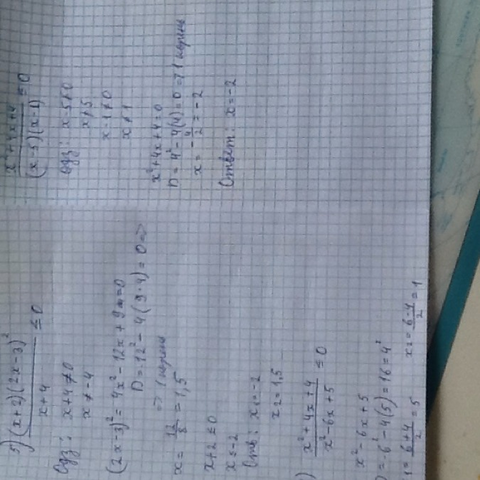 5) (x+2)(2x-3)²
x+4
≤ 0
Одз: x+4≠0
x≠-4
(2x-3)² = 4x²-12x+9=0
D=12²-4(9·4)=0=>
=> 1 корень
x = 12/8 = 1,5
x+2≤0
x≤-2
Отв: x₁=-2
x₂=1,5
) x²+4x+4
x²-6x+5
≤ 0
x²-6x+5
D=-6²-4(5)=16=4²
x₁=6+4/2=5
x₂=6-4/2=1
x²+4x+4
(x-5)(x-1)
≤ 0
Одз: x-5≠0
x≠5
x-1≠0
x≠1
x²+4x+4=0
D=4²-4(4)=0=>1 корень
x=-4/2=-2
Ответ: x=-2